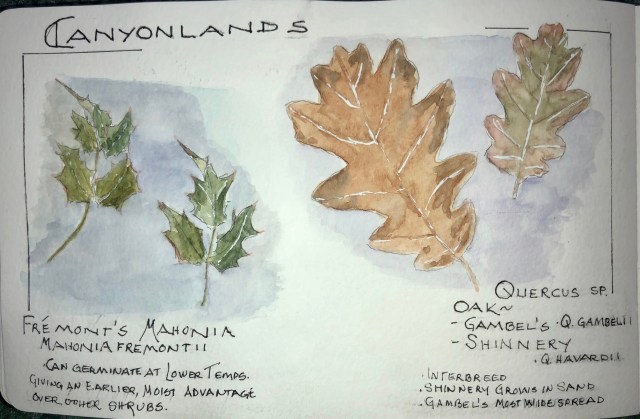 CANYONLANDS
FRÉMONT'S MAHONIA
MAHONIA FREMONTII
·CAN GERMINATE AT LOWER TEMPS.
GIVING AN EARLIER, MOIST ADVANTAGE
OVER OTHER SHRUBS.
QUERCUS SP.
OAK~
- GAMBEL'S ·Q. GAMBELII
- SHINNERY
·Q. HAVARDII
·INTERBREED
·SHINNERY GROWS IN SAND
·GAMBEL'S MOST WIDESPREAD